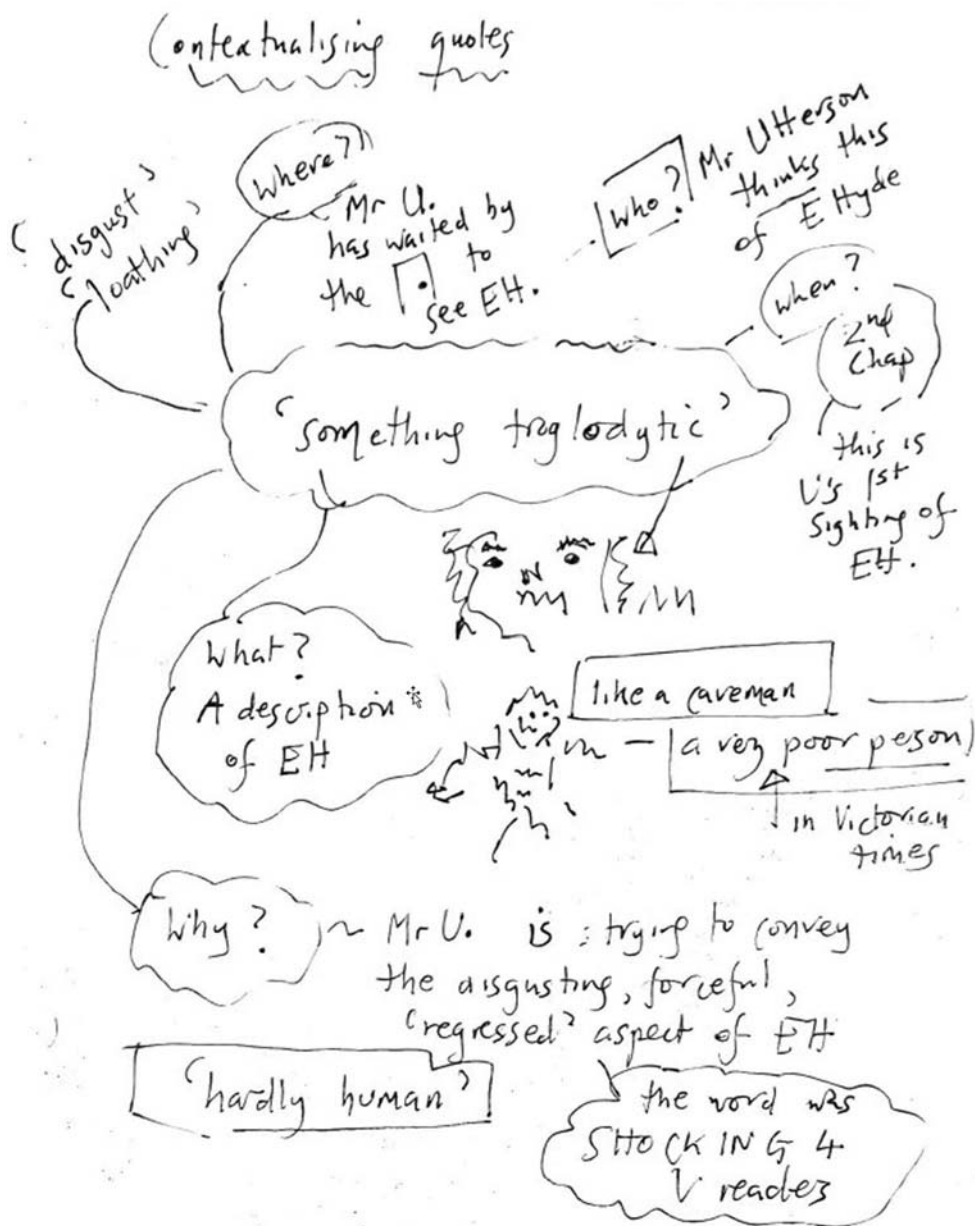 Contextualising quotes
'disgust'
'loathing'
Where?
Mr U.
has waited by
the to
see EH.
Who?
Mr Utterson
thinks this
of E Hyde
when?
2nd
Chap
this is
U's 1st
Sighting of
EH.
'something troglodytic'
What?
A description
of EH
like a caveman
a very poor person
in Victorian
times
Why?
Mr U. is trying to convey
the disgusting, forceful,
'regressed' aspect of EH
'hardly human'
the word was
SHOCKING 4
V readers